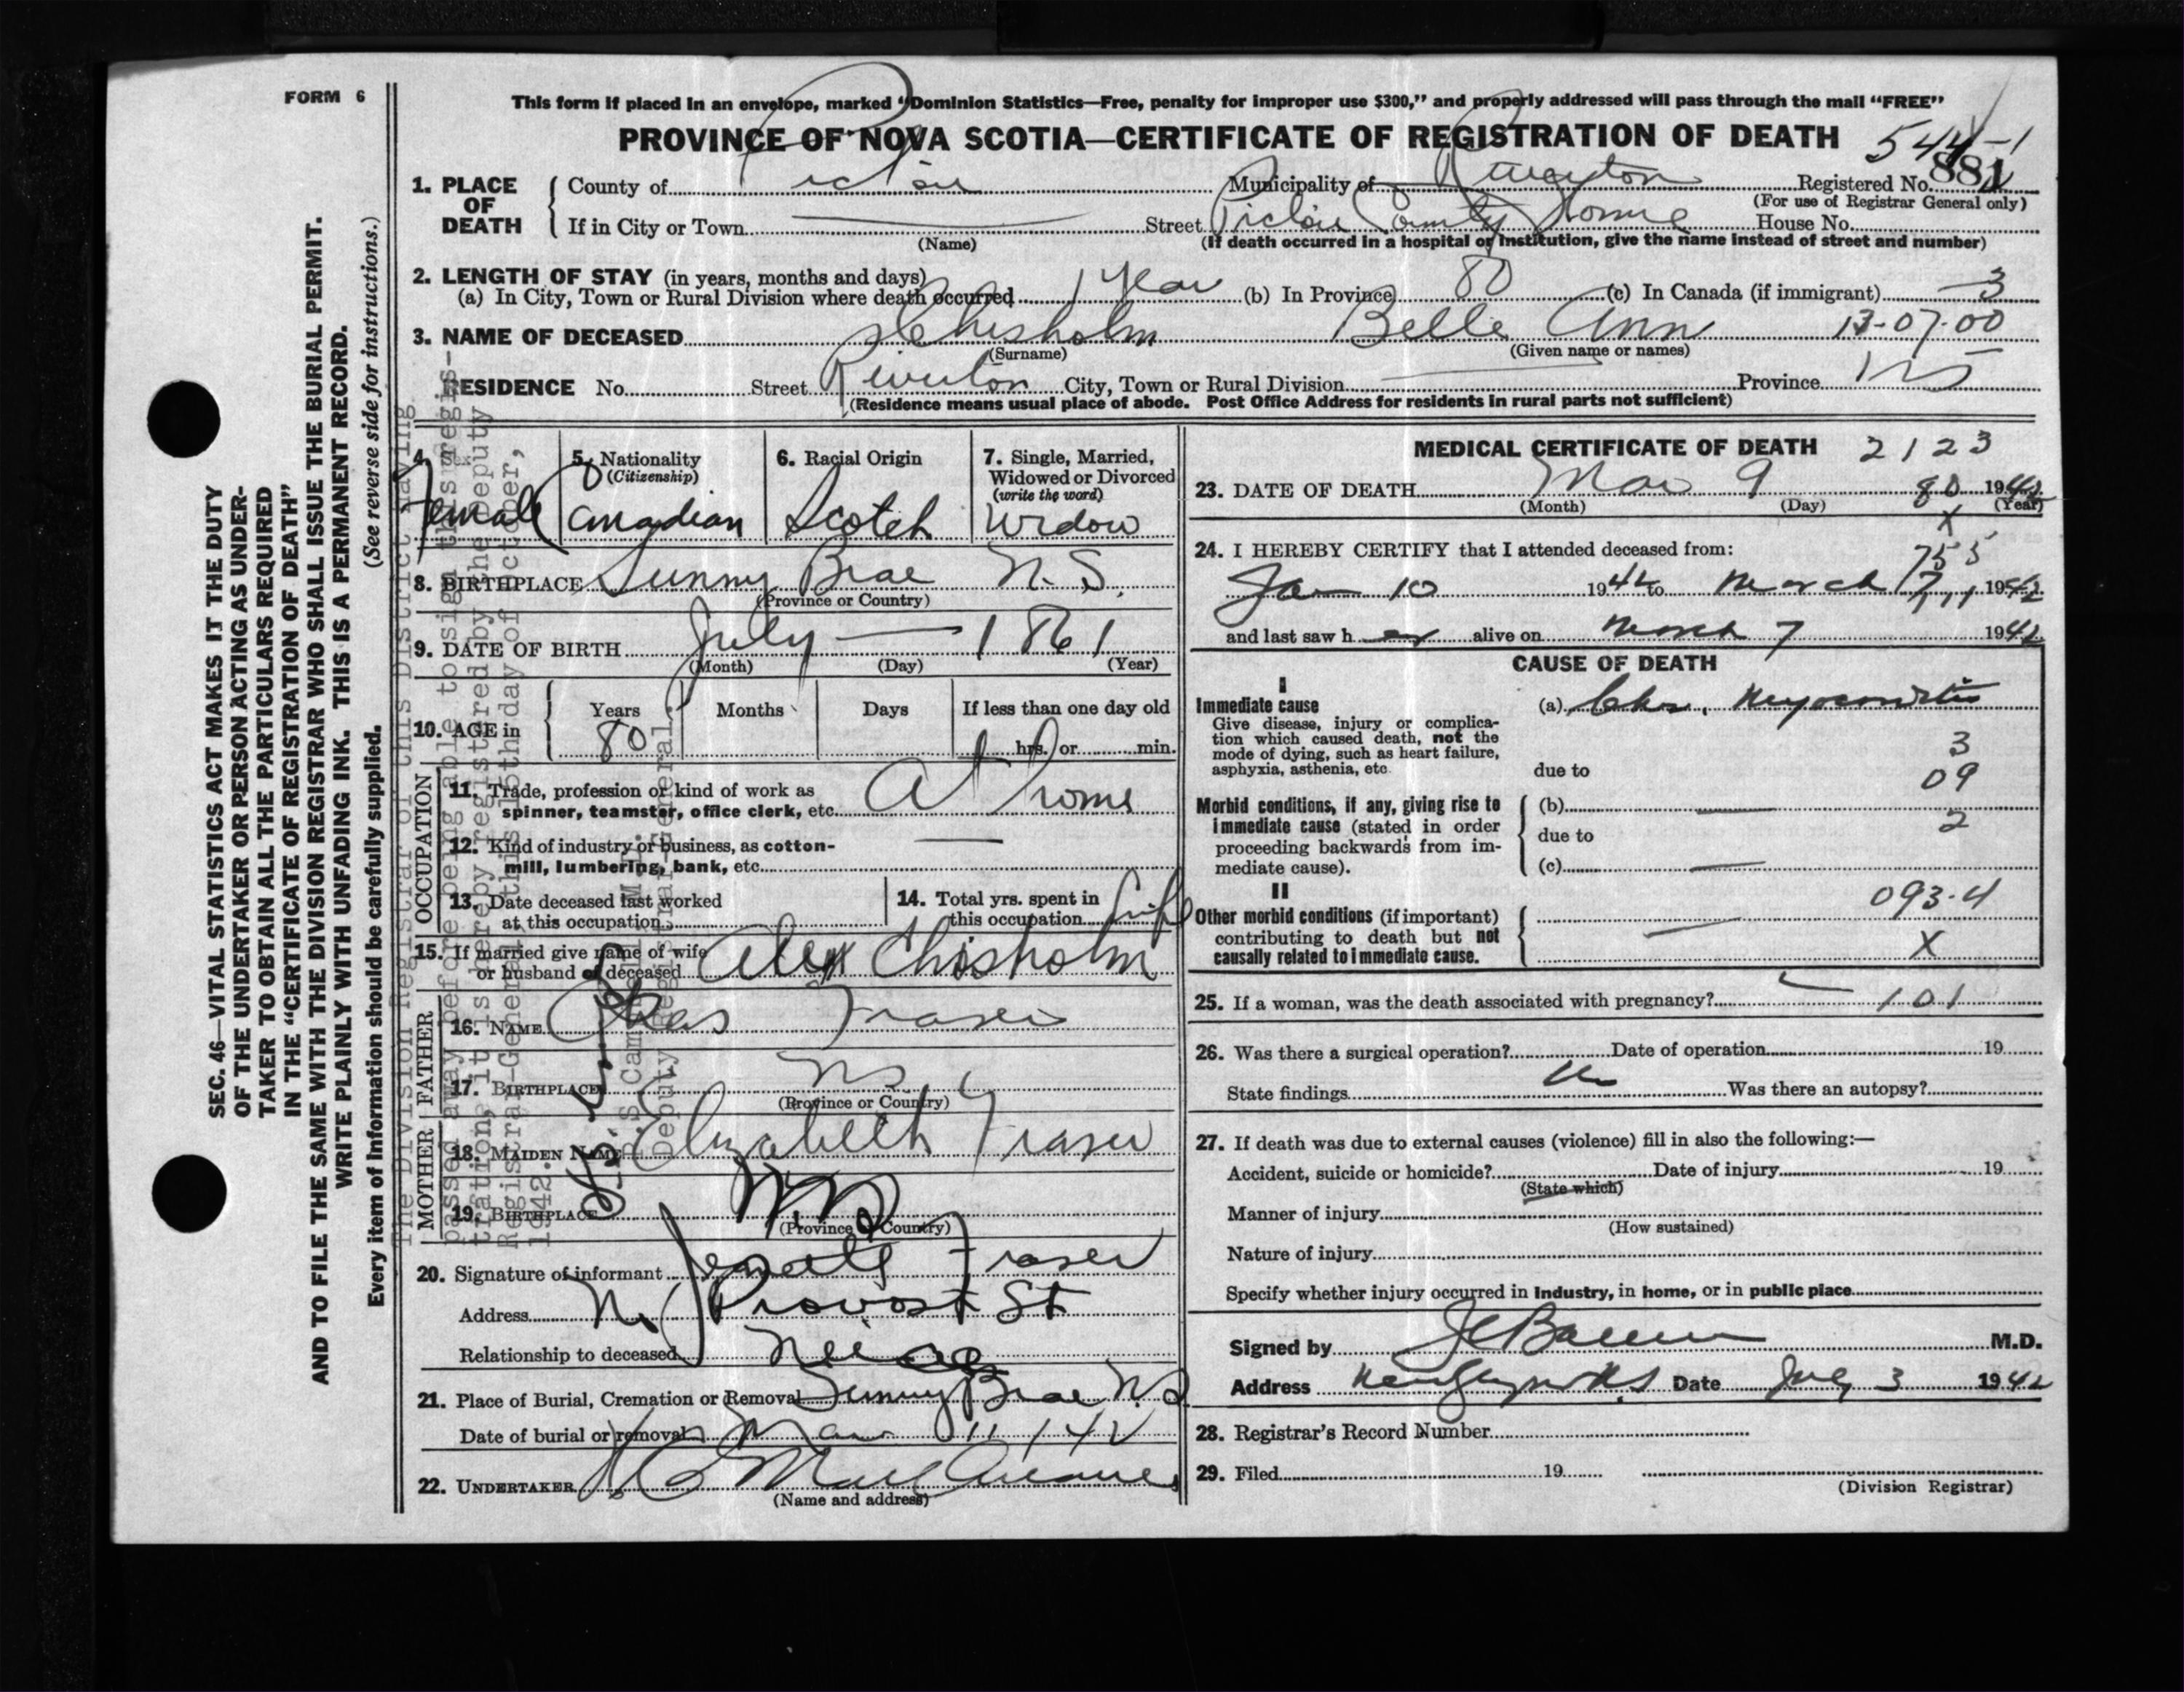 FORM 6
This form if placed in an envelope, marked “Dominion Statistics—Free, penalty for improper use $300,” and properly addressed will pass through the mail “FREE”
PROVINCE OF NOVA SCOTIA—CERTIFICATE OF REGISTRATION OF DEATH
544-1
1. PLACE OF DEATH
County of Pictou Municipality of Registered No. 881
(For use of Registrar General only)
If in City or Town Street Pictou County Home House No.
(Name) (If death occurred in a hospital or institution, give the name instead of street and number)
2. LENGTH OF STAY (in years, months and days)
(a) In City, Town or Rural Division where death occurred 1 Year (b) In Province 80 (c) In Canada (if immigrant) 3
3. NAME OF DECEASED Chisholm Belle Ann 13-07-00
(Surname) (Given name or names)
RESIDENCE No. Street Riverton City, Town or Rural Division Province NS
(Residence means usual place of abode. Post Office Address for residents in rural parts not sufficient)
4. Sex Female
5. Nationality (Citizenship) Canadian
6. Racial Origin Scotch
7. Single, Married, Widowed or Divorced (write the word) Widow
8. BIRTHPLACE Sunny Brae N.S.
(Province or Country)
9. DATE OF BIRTH July — 1861
(Month) (Day) (Year)
10. AGE in Years Months Days If less than one day old
80 hrs. or min.
OCCUPATION
11. Trade, profession or kind of work as spinner, teamster, office clerk, etc. At home
12. Kind of industry or business, as cotton-mill, lumbering, bank, etc.
13. Date deceased last worked at this occupation
14. Total yrs. spent in this occupation Life
15. If married give name of wife or husband of deceased Alex Chisholm
FATHER
16. NAME Chas Fraser
17. BIRTHPLACE NS
(Province or Country)
MOTHER
18. MAIDEN NAME Elizabeth Fraser
19. BIRTHPLACE N.S
(Province or Country)
20. Signature of informant Fraser
Address Provost St
Relationship to deceased Neice
21. Place of Burial, Cremation or Removal Sunny Brae N.S
Date of burial or removal Mar 11/42
22. UNDERTAKER
(Name and address)
MEDICAL CERTIFICATE OF DEATH 2123
23. DATE OF DEATH Mar 9 80 1942
(Month) (Day) (Year)
X
24. I HEREBY CERTIFY that I attended deceased from:
755
Jan 10 1942 to March 7 1942
and last saw her alive on March 7 1942
CAUSE OF DEATH
I
Immediate cause (a) Chr. Myocarditis
Give disease, injury or complication which caused death, not the mode of dying, such as heart failure, asphyxia, asthenia, etc.
3
due to 09
Morbid conditions, if any, giving rise to immediate cause (stated in order proceeding backwards from immediate cause).
(b) — 2
due to
(c) —
II
093.4
Other morbid conditions (if important) contributing to death but not causally related to immediate cause.
X
25. If a woman, was the death associated with pregnancy? 101
26. Was there a surgical operation? Date of operation 19
State findings Was there an autopsy?
27. If death was due to external causes (violence) fill in also the following:—
Accident, suicide or homicide? Date of injury 19
(State which)
Manner of injury
(How sustained)
Nature of injury
Specify whether injury occurred in industry, in home, or in public place
Signed by M.D.
Address Date July 3 1942
28. Registrar's Record Number
29. Filed 19
(Division Registrar)
SEC. 46—VITAL STATISTICS ACT MAKES IT THE DUTY
OF THE UNDERTAKER OR PERSON ACTING AS UNDER-
TAKER TO OBTAIN ALL THE PARTICULARS REQUIRED
IN THE “CERTIFICATE OF REGISTRATION OF DEATH”
AND TO FILE THE SAME WITH THE DIVISION REGISTRAR WHO SHALL ISSUE THE BURIAL PERMIT.
WRITE PLAINLY WITH UNFADING INK. THIS IS A PERMANENT RECORD.
Every item of information should be carefully supplied. (See reverse side for instructions.)
The Division Registrar of this District having
passed away before being able to sign this regis-
tration, it is hereby registered by the Deputy
Registrar-General this day of October,
1942.
Deputy Registrar-General.